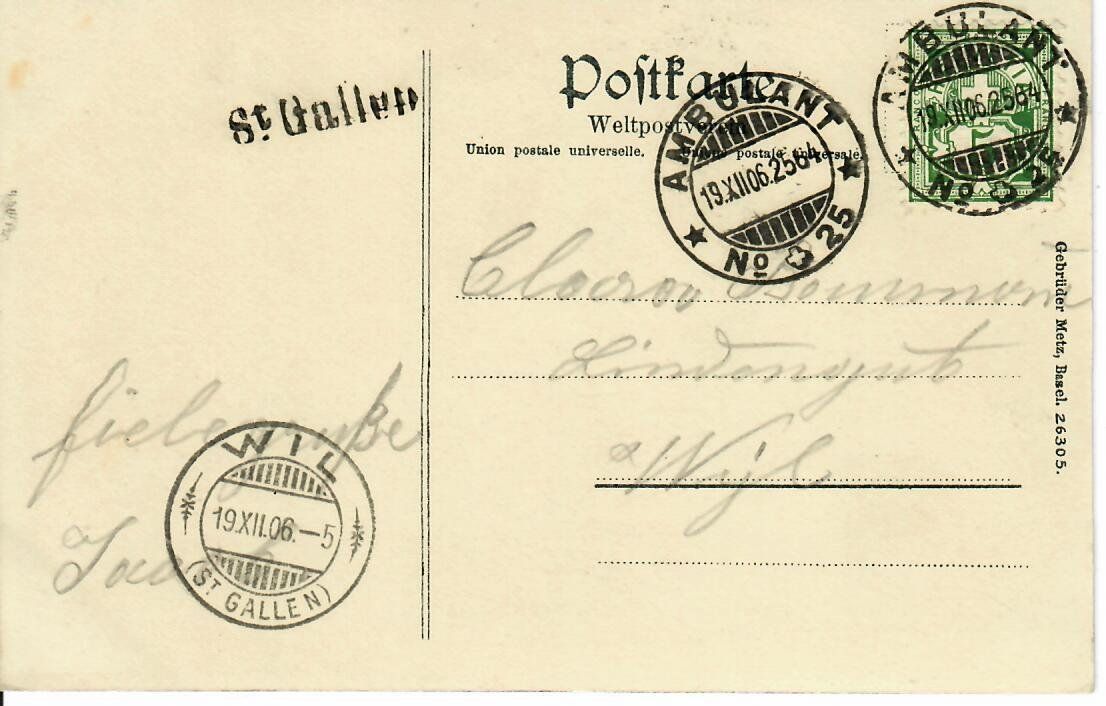 St Gallen
Postkarte
Weltpostverein
Union postale universelle. postale universale.
AMBULANT
19.XII.06.2564
No 25
AMBULANT
19.XII.06.2564
No 25
Lindengut
Wyl
Gebrüder Metz, Basel. 26305.
WIL
19.XII.06.-5
(ST GALLEN)